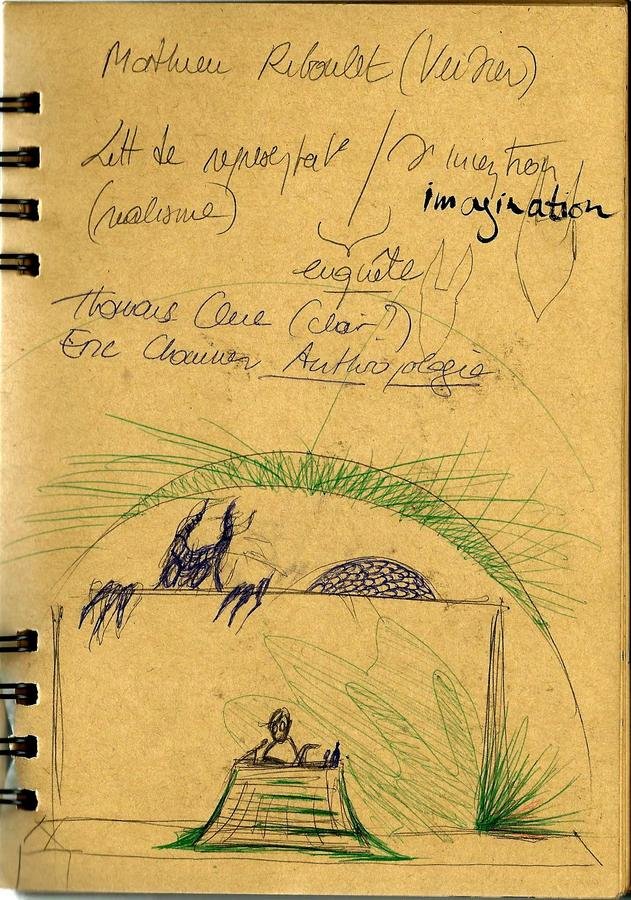 Mathieu Riboulet (Verdier)
Litt de représentat° / d'invention
imagination
(réalisme)
enquête
Thomas Clerc (clair?)
Eric Chauvier Anthropologie